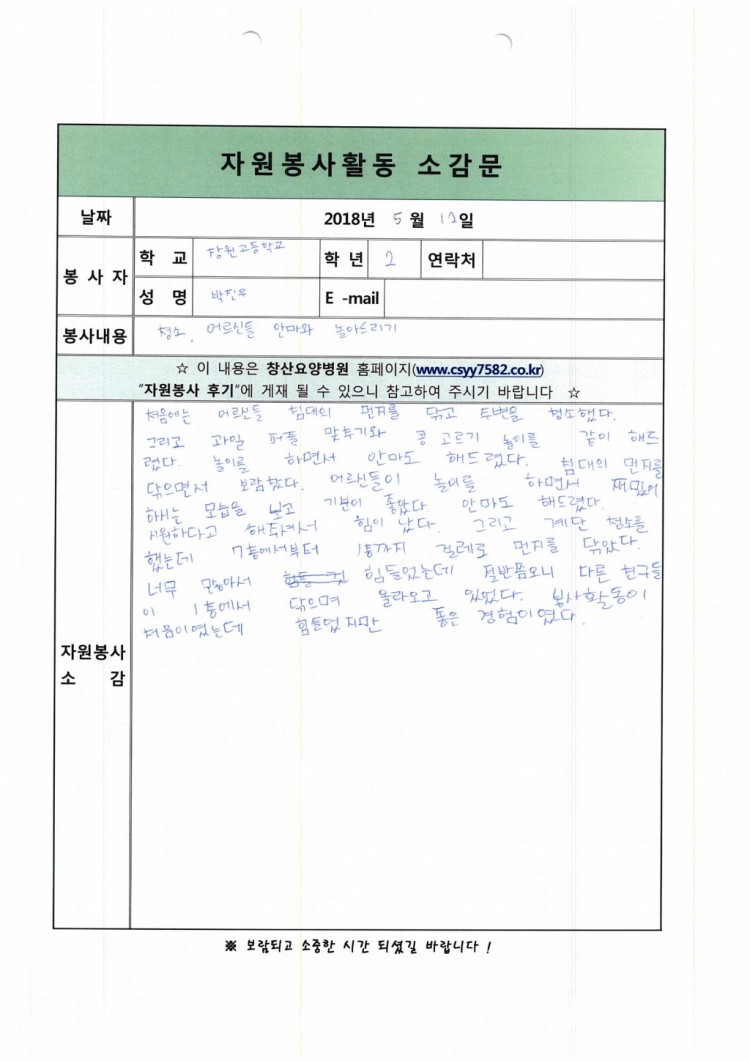 자원봉사활동 소감문
날짜 2018년 5월 12일
봉사자 학교 창원고등학교 학년 2 연락처
성명 박진우 E-mail
봉사내용 청소, 어르신들 안마와 놀아드리기
☆ 이 내용은 창산요양병원 홈페이지(www.csyy7582.co.kr)
"자원봉사 후기"에 게재 될 수 있으니 참고하여 주시기 바랍니다 ☆
자원봉사 소감
처음에는 어르신들 침대의 먼지를 닦고 주변을 청소했다.
그리고 과일 퍼즐 맞추기와 콩 고르기 놀이를 같이 해드
렸다. 놀이를 하면서 안마도 해드렸다. 침대의 먼지를
닦으면서 보람찼다. 어르신들이 놀이를 하면서 재밌어
하시는 모습을 보고 기분이 좋았다. 안마도 해드렸다.
시원하다고 해주셔서 힘이 났다. 그리고 계단 청소를
했는데 7층에서부터 1층까지 걸레로 먼지를 닦았다.
너무 많아서 힘들었는데 절반쯤오니 다른 친구들
이 1층에서 닦으며 올라오고 있었다. 봉사활동이
처음이였는데 힘들었지만 좋은 경험이였다.
※ 보람되고 소중한 시간 되셨길 바랍니다 !